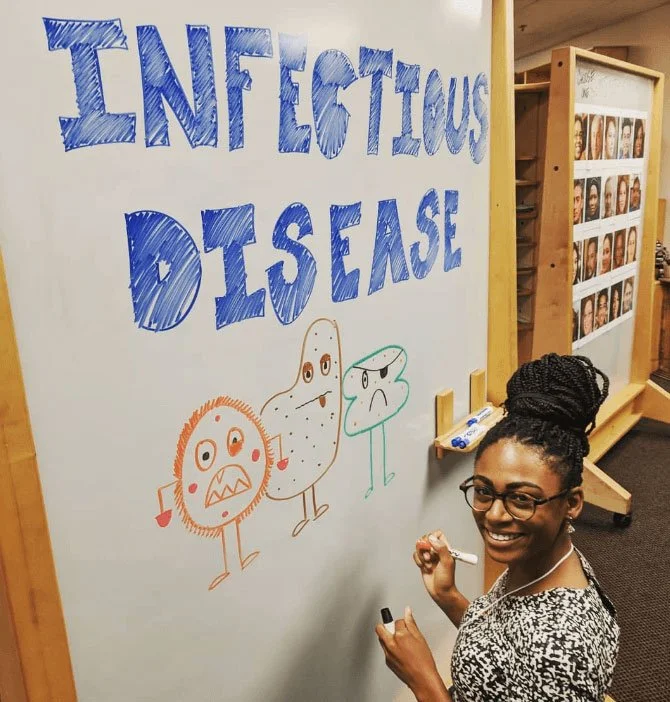 INFECTIOUS
DISEASE